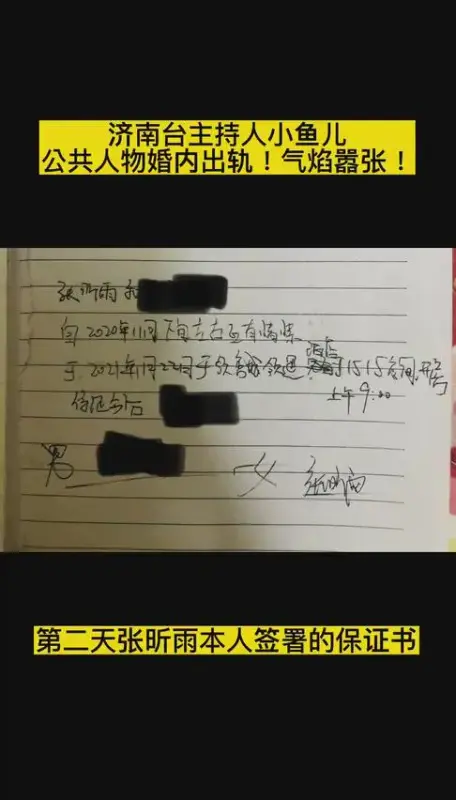 济南台主持人小鱼儿
公共人物婚内出轨！气焰嚣张！
张昕雨和
自2020年11月下旬左右互有情愫
于2021年1月22日于 酒店 1515房间开房
上午9:00
保证今后
男 女 张昕雨
第二天张昕雨本人签署的保证书